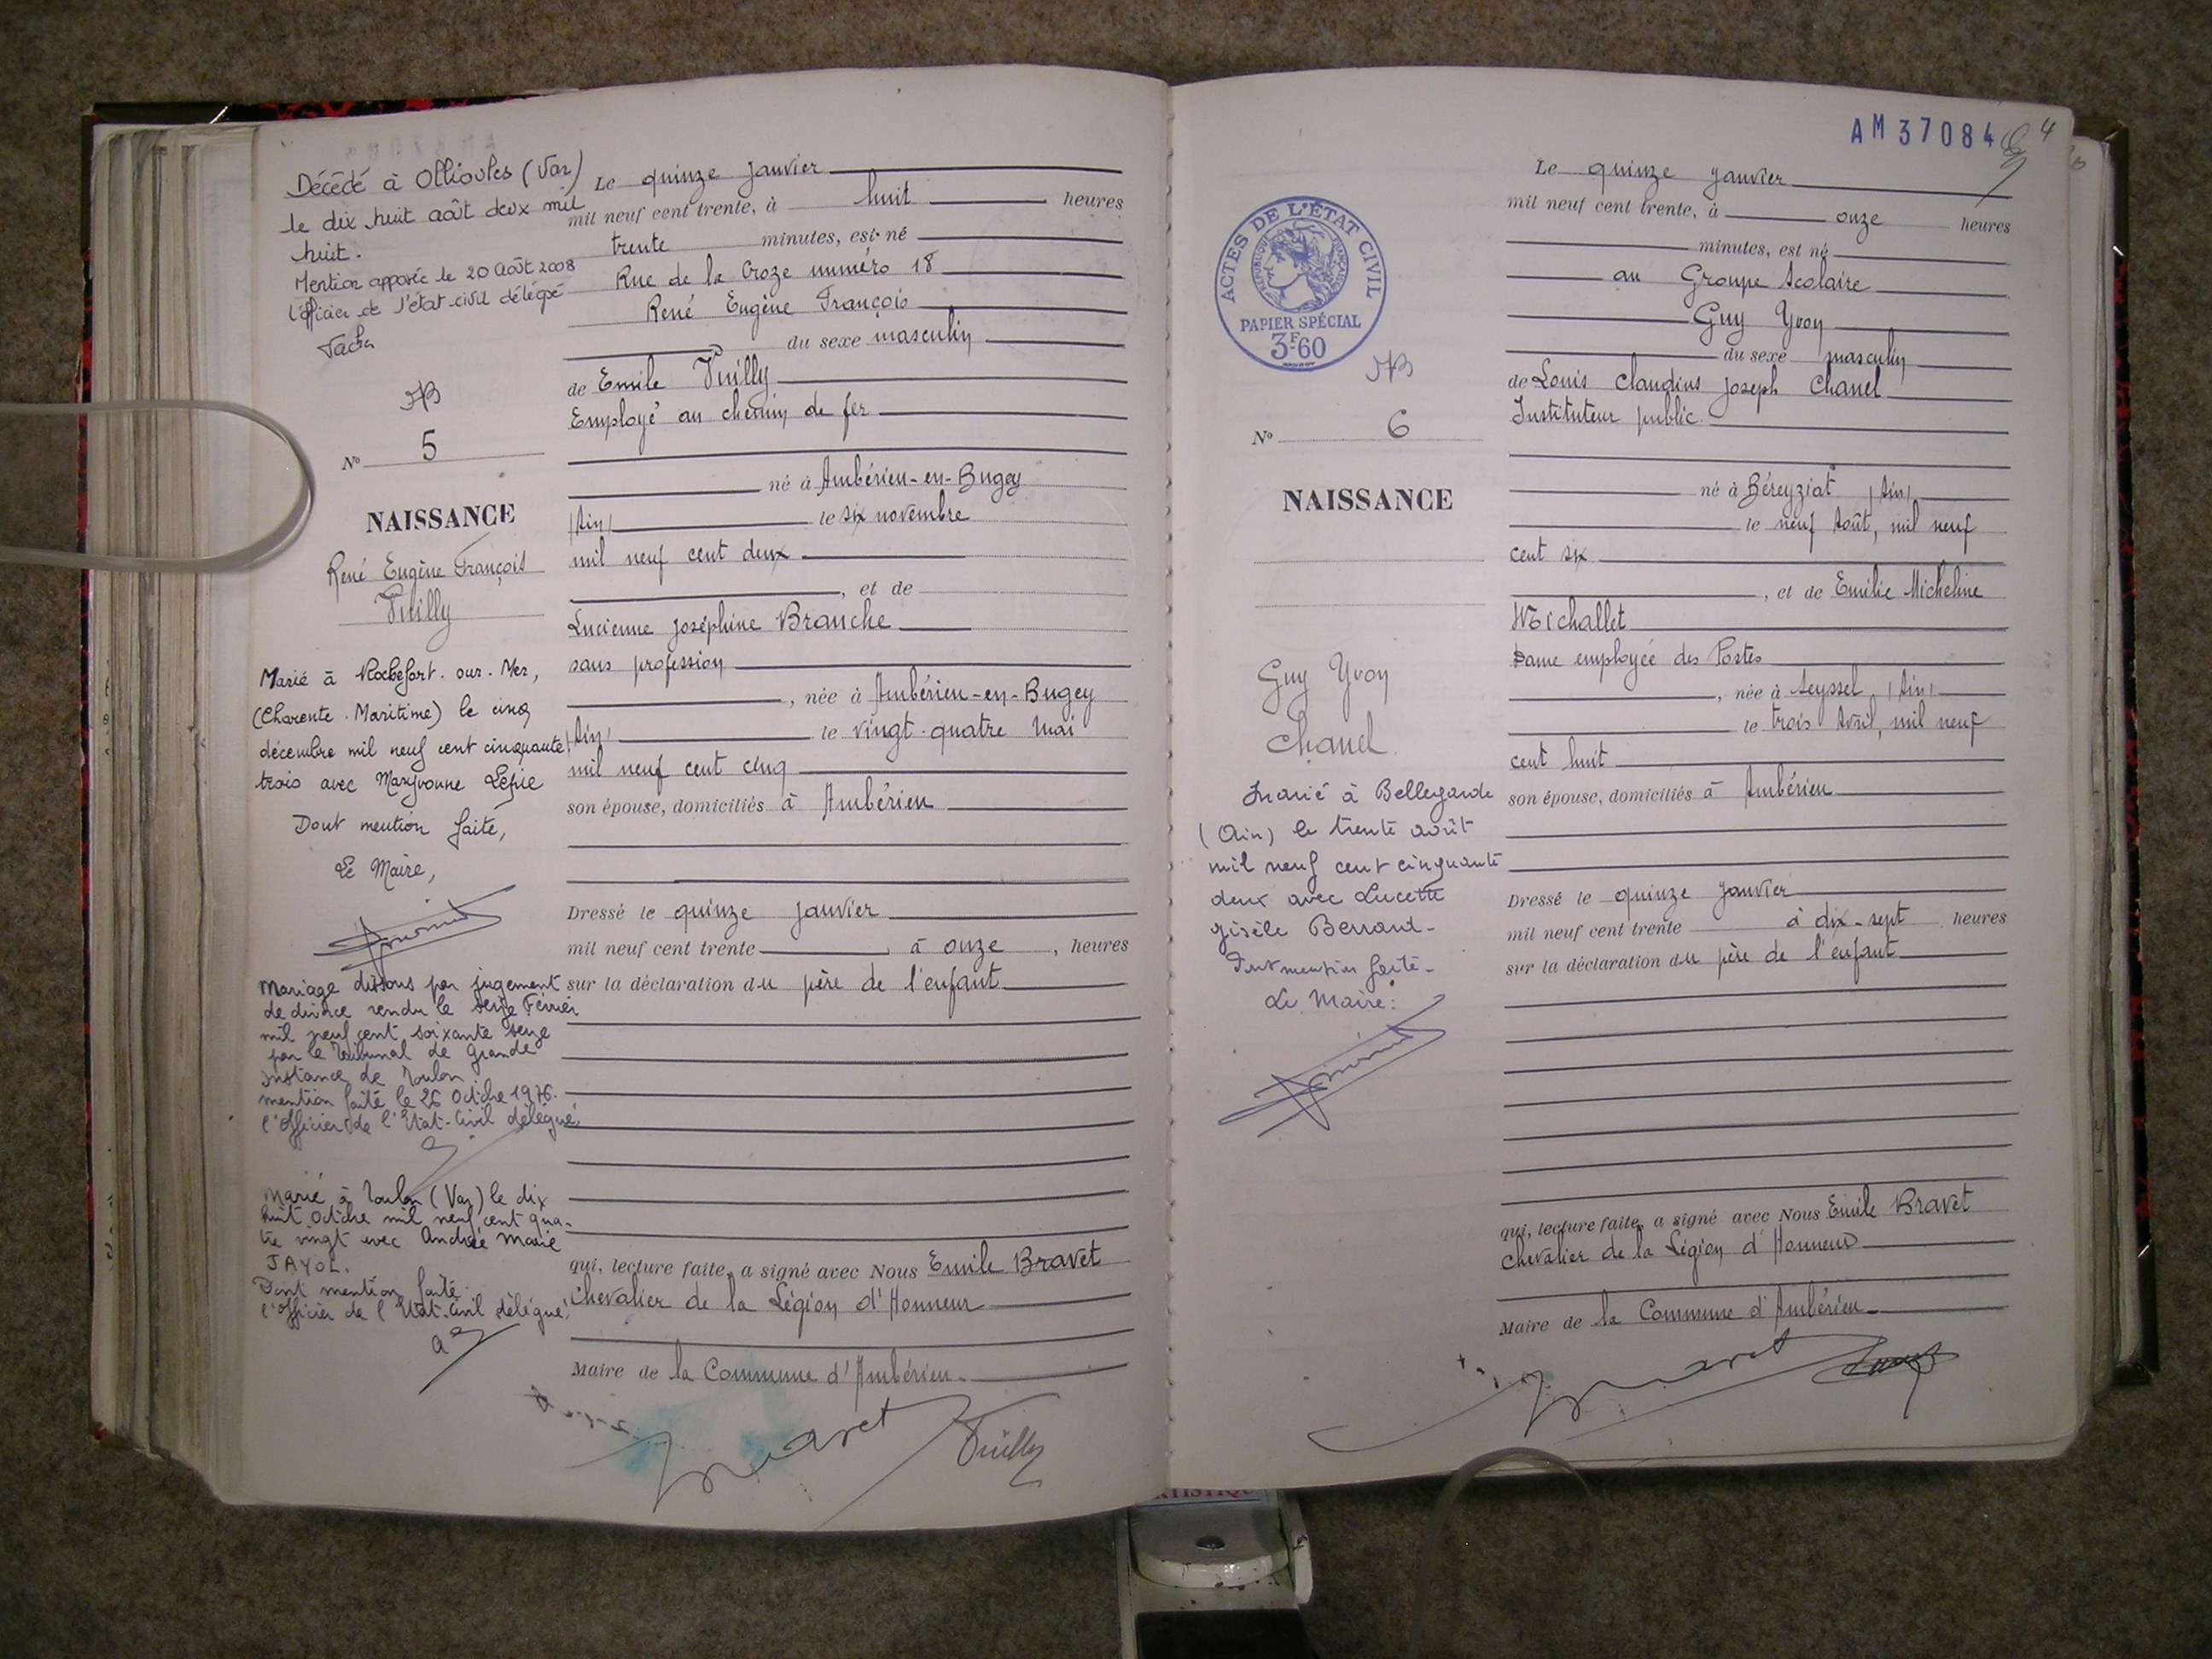 Décédé à Ollioules (Var)
le dix huit août deux mil
huit.
Mention apposée le 20 Août 2008
l'Officier de l'état-civil délégué
N° 5
NAISSANCE
René Eugène François
Vuilly
Marié à Rochefort-sur-Mer,
(Charente-Maritime) le cinq
décembre mil neuf cent cinquante
trois avec Maryvonne
Dont mention faite,
Le Maire,
Mariage dissous par jugement
de divorce rendu le seize Février
mil neuf cent soixante seize
par le Tribunal de Grande
Instance de Toulon
mention faite le 26 Octobre 1976.
l'Officier de l'Etat-Civil délégué,
Marié à Toulon (Var) le dix
huit Octobre mil neuf cent qua-
tre vingt avec Andrée Marie
JAYOL.
Dont mention faite.
l'Officier de l'Etat-Civil délégué,
Le quinze Janvier
mil neuf cent trente, à huit heures
trente minutes, est né
Rue de la Croze numéro 18
René Eugène François
du sexe masculin
de Emile Vuilly
Employé au chemin de fer
né à Ambérieu-en-Bugey
(Ain) le six novembre
mil neuf cent deux
, et de
Lucienne Joséphine Branche
sans profession
, née à Ambérieu-en-Bugey
(Ain) le vingt-quatre Mai
mil neuf cent cinq
son épouse, domiciliés à Ambérieu
Dressé le quinze Janvier
mil neuf cent trente à onze, heures
sur la déclaration du père de l'enfant
qui, lecture faite, a signé avec Nous Emile Bravet
Chevalier de la Légion d'Honneur
Maire de la Commune d'Ambérieu.
Bravet Vuilly
AM 37084
4
ACTES DE L'ÉTAT CIVIL
RÉPUBLIQUE FRANÇAISE
PAPIER SPÉCIAL
3F.60
N° 6
NAISSANCE
Guy Yvon
Chanel
Marié à Bellegarde
(Ain) le trente août
mil neuf cent cinquante
deux avec Lucette
Gisèle Berrand-
Dont mention faite-
Le Maire:
Le quinze Janvier
mil neuf cent trente, à onze heures
minutes, est né
au Groupe Scolaire
Guy Yvon
du sexe masculin
de Louis Claudius Joseph Chanel
Instituteur public.
né à Béreyziat (Ain)
le neuf Août, mil neuf
cent six
, et de Emilie Micheline
Michallet
Dame employée des Postes
, née à Seyssel (Ain)
le trois Avril, mil neuf
cent huit
son épouse, domiciliés à Ambérieu
Dressé le quinze Janvier
mil neuf cent trente à dix-sept heures
sur la déclaration du père de l'enfant
qui, lecture faite, a signé avec Nous Emile Bravet
Chevalier de la Légion d'Honneur
Maire de la Commune d'Ambérieu
Bravet